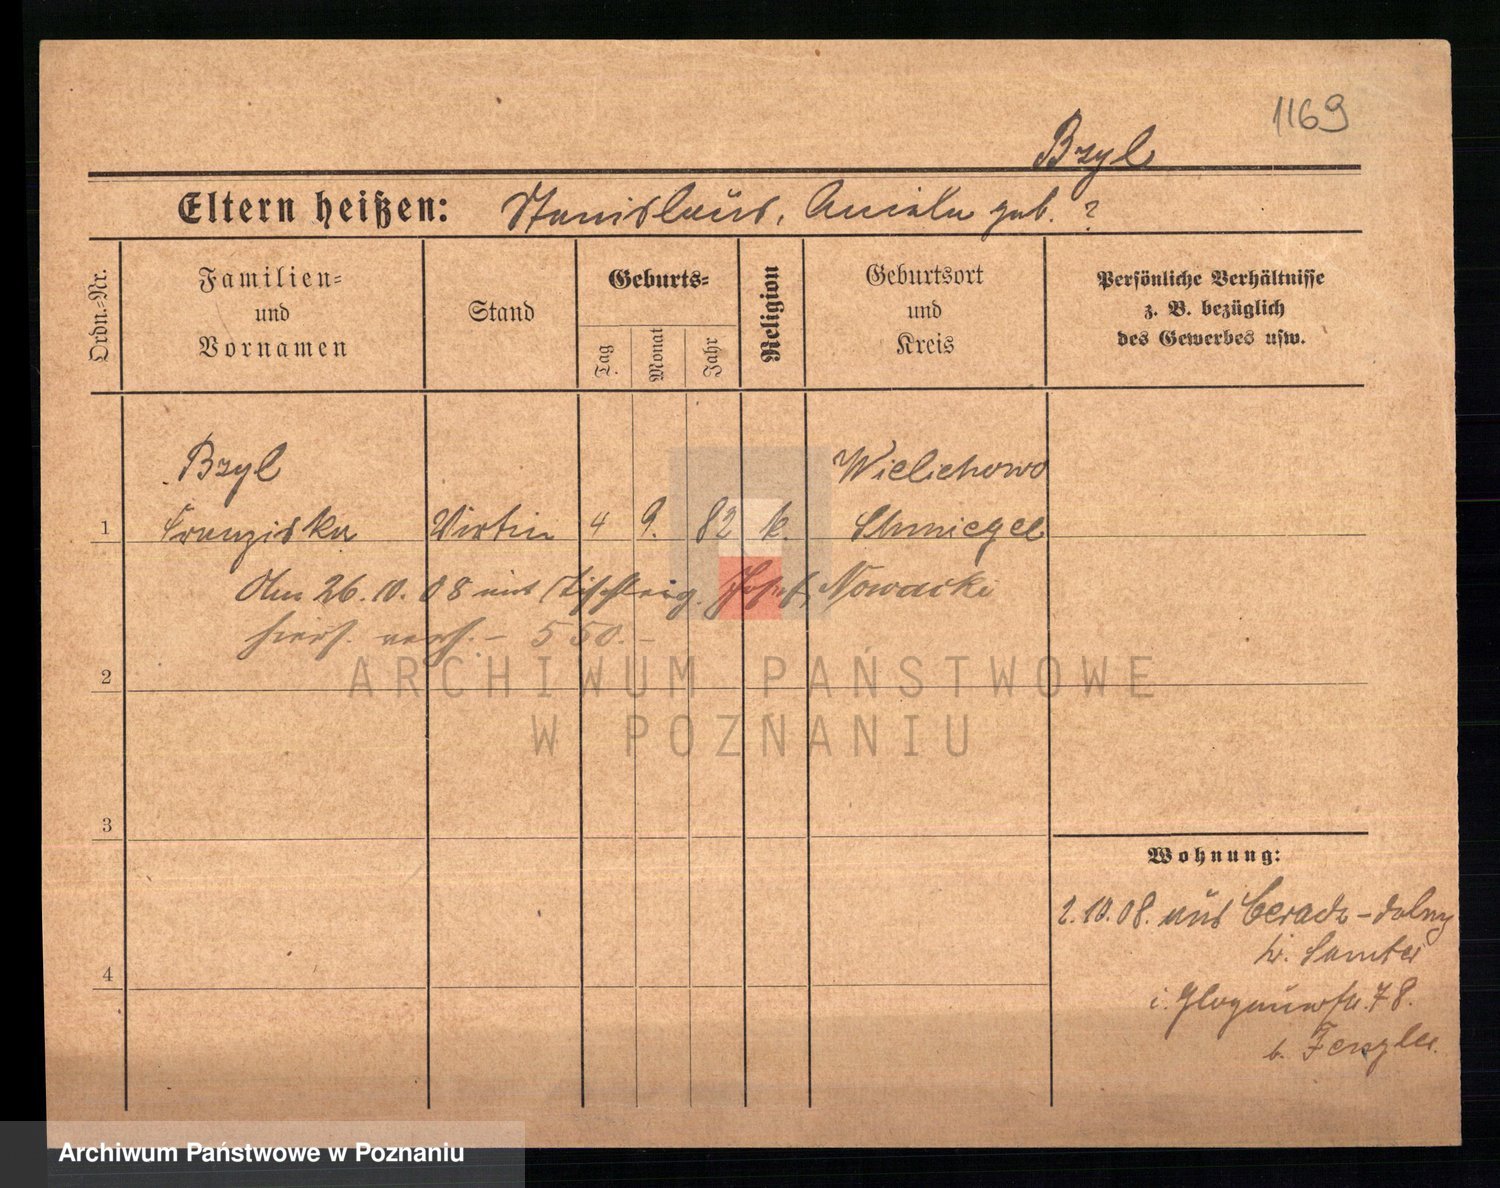 1169
Bzyl
Eltern heißen: Stanislaus, Aniela geb. ?
Ordn.-Nr.
Familien- und Vornamen
Stand
Geburts-
Tag
Monat
Jahr
Religion
Geburtsort und Kreis
Persönliche Verhältnisse z. B. bezüglich des Gewerbes usw.
Bzyl Wielichowo
1 Franziska Wirtin 4 9. 82 k. Schmiegel
Am 26.10.08 mit Josef Nowacki
hiers. verh. - 550. -
2
3
4
Wohnung:
2.10.08. aus Ceradz-dolny
kr. Samter
i. Glogauerstr. 78.
b.
ARCHIWUM PAŃSTWOWE
W POZNANIU
Archiwum Państwowe w Poznaniu